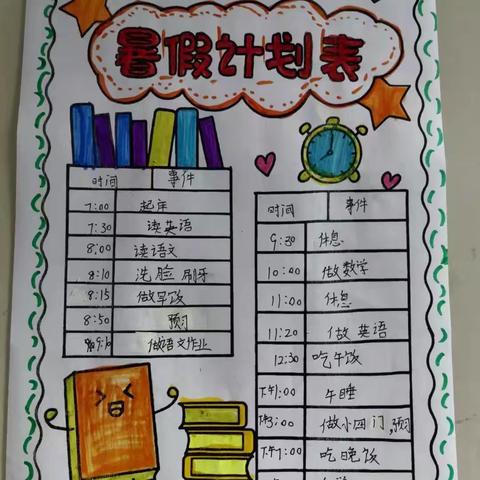 暑假计划表
时间 事件
7:00 起床
7:30 读英语
8:00 读语文
8:10 洗脸刷牙
8:15 做早饭
8:50 预习
9:10 做语文作业
时间 事件
9:30 休息
10:00 做数学
11:00 休息
11:20 做英语
12:30 吃午饭
下午1:00 午睡
下午3:00 做小四门,预习
下午7:00 吃晚饭